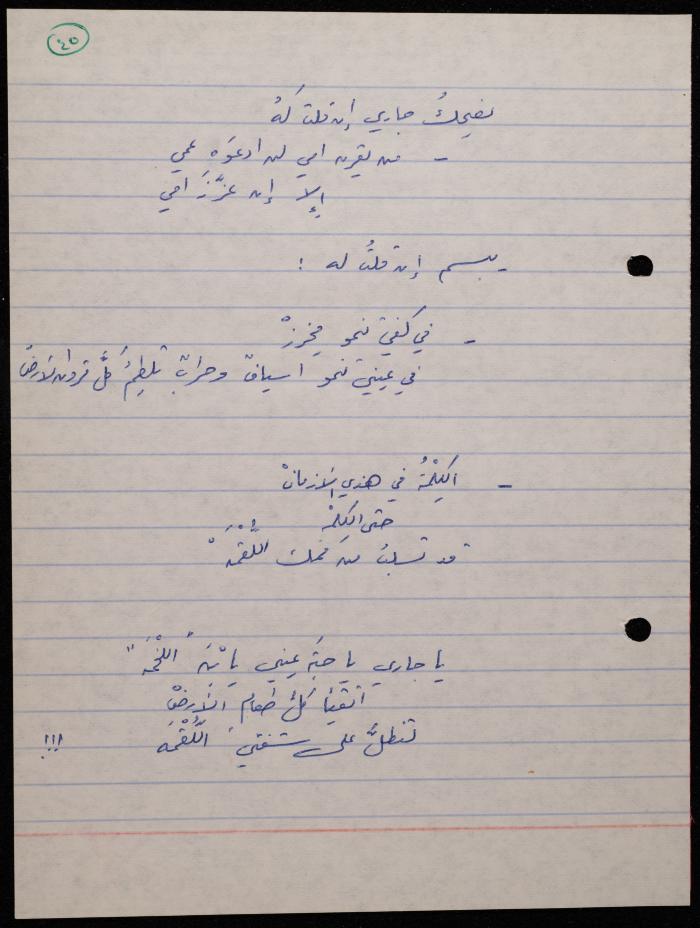 ٤٥
يضحكُ جاري إن قلت لهُ
- من يقرن امي لن ادعوَه عمي
إلا إن عزَّزَ امي
يبسم إن قلتُ له :
- في كفيَّ تنمو مِخرزْ
في عينيَّ تنمو اسيافٌ وحرابٌ تلطِمُ كلَّ قرون الأرضْ
- الكِلْمةُ في هذي الأزمانْ
حتى الكِلمْة
قد تسلبُ من فمك "اللُّقْمَه"
يا جاري يا حبَّه عيني يا بْنَ "اللخْمَه"
اتقيأ كلَّ طعام الأرضْ
تنطلُّ على شفتي "اللُّقْمَه !!!